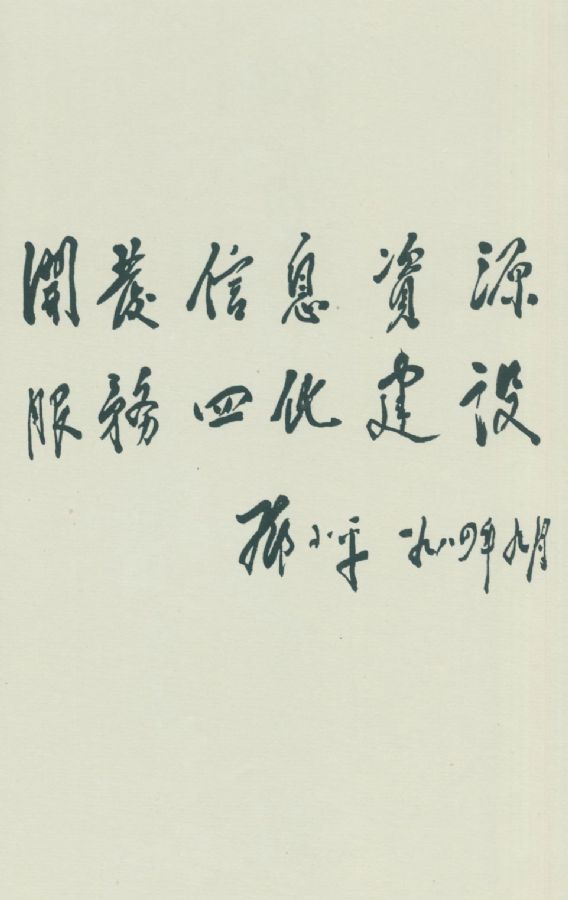 開發信息資源
服務四化建设
邓小平 一九八四年九月